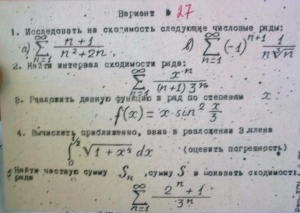 Вариант № 27
1. Исследовать на сходимость следующие числовые ряды:
а) ∞ ∑ n=1 n+1 / n²+2n , б) ∞ ∑ n=1 (-1)ⁿ⁺¹ 1 / n∛n
2. Найти интервал сходимости ряда:
∞ ∑ n=1 xⁿ / (n+1) 3ⁿ
3. Разложить данную функцию в ряд по степеням x
f(x) = x sin² x/3
4. Вычислить приближенно, взяв в разложении 3 члена
∫ 0 1/2 dx (оценить погрешность)
5 Найти частную сумму Sₙ , сумму S и показать сходимость
ряда
∞ ∑ n=1 2ⁿ+1 / 3ⁿ